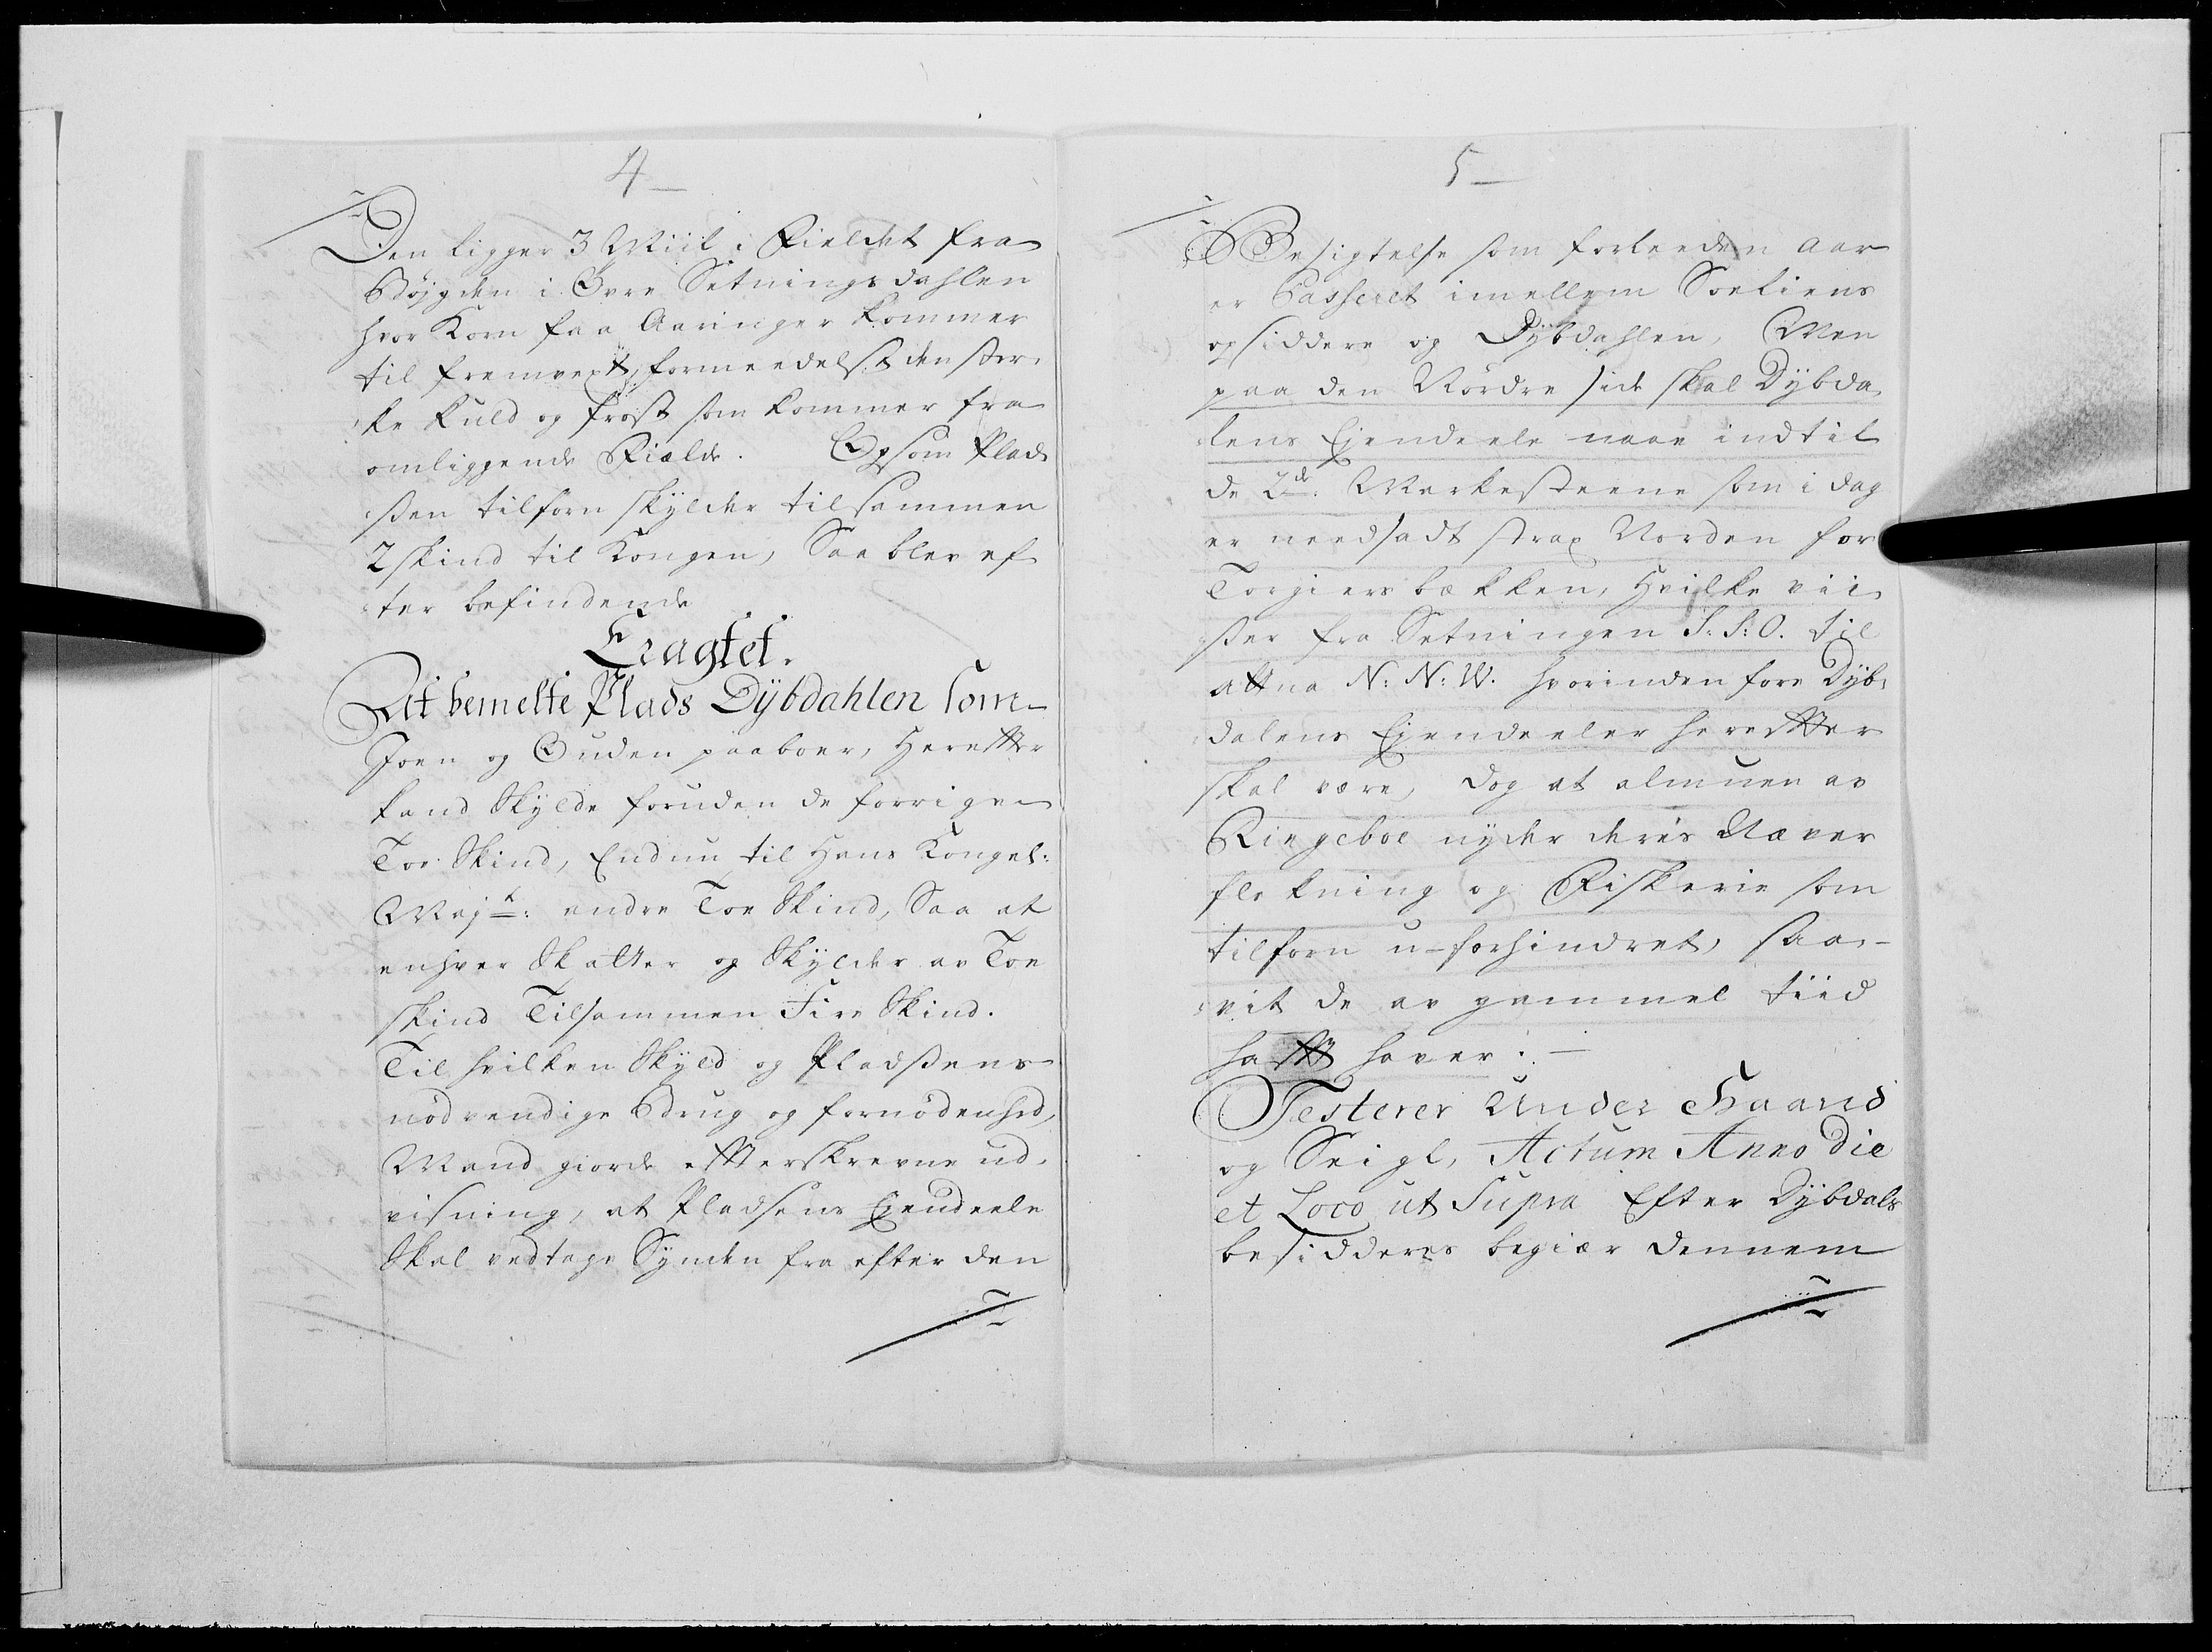 4
Den ligger 3 Miil i Fieldet fra
Bøygden i Øvre Setningsdahlen
hvor Korn faa Aaringer kommer
til fremvext, formeedelst den ster¬
ke Kuld og frost som kommer fra
omliggende Fielde. Og som Plad¬
sen tilforn skylder tilsammen
2 skind til Kongen, Saa blev ef¬
ter befindende
Eragtet.
At bemelte Plads Dÿbdahlen som
Joen og Guden paaboer, Herefter
kand Skylde foruden de forrige
Toe Skind, Endnu til Hans Kongel:
Majt: andre Toe Skind, Saa at
enhver Skatter og Skylder av Toe
skind Tilsammen Fire Skind.
Til hvilken Skyld og Pladsens
nødvendige Brug og fornødenhed,
Mand giorde efterskrevne ud¬
visning, at Pladsens Ejendeele
Skal vedtage Synden fra efter den
5
Besigtelse som forleeden aar
er Passeret imellem Solliens
opsiddere og Dÿbdahlen, Men
paa den Nørdre side skal Dÿbda
lens Ejendeele naae indtil
de 2de Markesteene som i dag
er needsadt strax Norden for
Torgiersbækken, Hvilke vii¬
ser fra Setningen S: S: O. til
attna N: N: W. hvorinden fore Dÿb¬
dalens Ejendeeler herefter
skal være, dog at almuen av
Ringeboe nyder deris Næver
flekning og Fiskerie som
tilforn u-forhindret, saa¬
vit de av gammel tiid
hafft haver.
Testerer Under Haand
og Seigl, Actum Anno die
et Loco ut Supra Efter Dÿbdals
besidderes begiær dennem